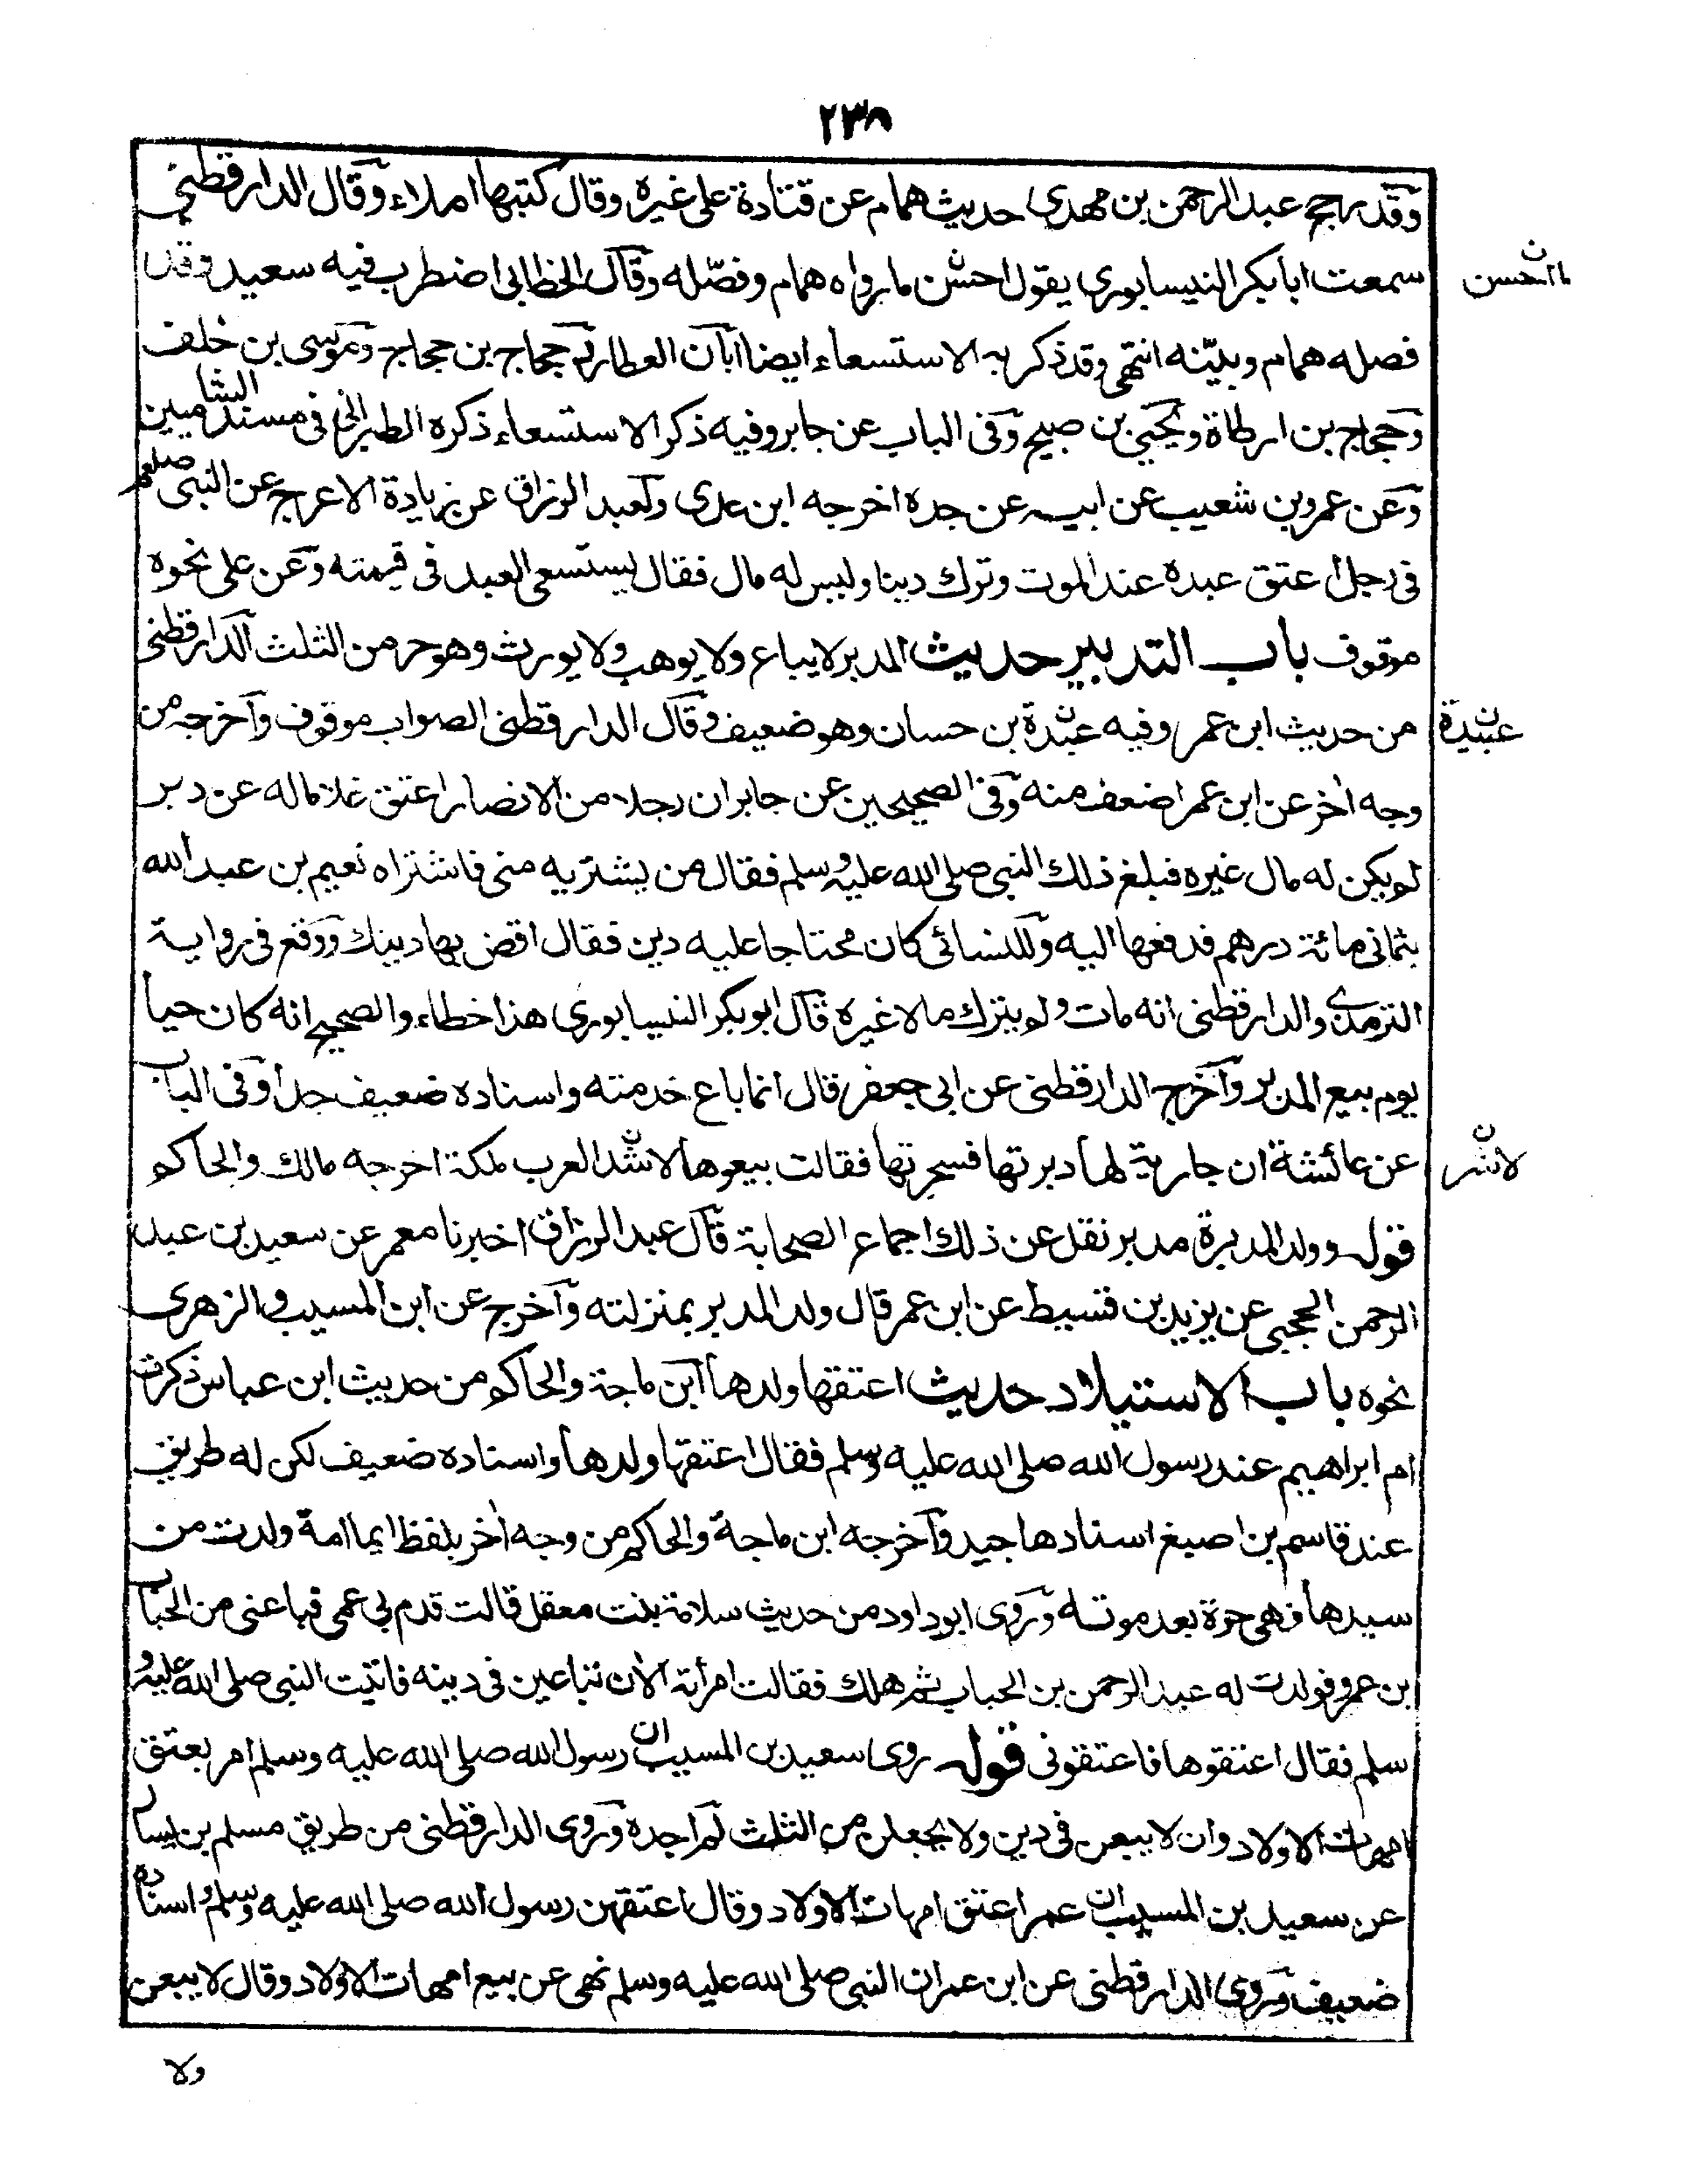 ٢٣٨
وقد رجح عبد الرحمن بن مهدى حديث همام عن قتادة على غيره وقال كتبها املاء وقال الدارقطنى
سمعت ابا بكر النيسابورى يقول احسن ما رواه همام وفصّله وقال الخطابى اضطرب فيه سعيد وقد
ما احسن
فصله همام وبيّنه انتهى وقد ذكر به الاستسعاء ايضا ابان العطار ثم حجاج بن حجاج وموسى بن خلف
وحجاج بن ارطاة ويحيى بن صبيح وفى الباب عن جابر وفيه ذكر الاستسعاء ذكره الطبرانى فى مسند الشاميين
وعن عمرو بن شعيب عن ابيه عن جده اخرجه ابن عدى ولعبد الرزاق عن زيادة الاعرج عن النبى صلعم
فى رجل اعتق عبده عند الموت وترك دينا وليس له مال فقال يستسعى العبد فى قيمته وعن على نحوه
موقوف باب التدبير حديث المدبر لا يباع ولا يوهب ولا يورث وهو حر من الثلث الدارقطنى
من حديث ابن عمر وفيه عبدة بن حسان وهو ضعيف وقال الدارقطنى الصواب موقوف واخرجه من
عبيدة
وجه اخر عن ابن عمر اضعف منه وفى الصحيحين عن جابر ان رجلا من الانصار اعتق غلاما له عن دبر
لم يكن له مال غيره فبلغ ذلك النبى صلى الله عليه وسلم فقال من يشتريه منى فاشتراه نعيم بن عبد الله
بثمانى مائة درهم فدفعها اليه وللنسائى كان محتاجا عليه دين فقال اقض بها دينك ووقع فى رواية
الترمذى والدارقطنى انه مات ولم يترك مالا غيره قال ابو بكر النيسابورى هذا خطاء والصحيح انه كان حيا
يوم بيع المدبر واخرج الدارقطنى عن ابى جعفر قال انما باع خدمته واسناده ضعيف جدا وفى الباب
عن عائشة ان جارية لها دبرتها فسحرتها فقالت بيعوها لاشد العرب ملكة اخرجه مالك والحاكم
لاشر
قوله وولد المدبرة مدبر نقل عن ذلك اجماع الصحابة قال عبد الرزاق اخبرنا معمر عن سعيد بن عبد
الرحمن الحجبى عن يزيد بن قسيط عن ابن عمر قال ولد المدبر بمنزلته واخرج عن ابن المسيب والزهرى
نحوه باب الاستيلاد حديث اعتقها ولدها ابن ماجة والحاكم من حديث ابن عباس ذكرت
ام ابراهيم عند رسول الله صلى الله عليه وسلم فقال اعتقها ولدها واسناده ضعيف لكن له طريق
عند قاسم بن اصبغ اسنادها جيد واخرجه ابن ماجة والحاكم من وجه اخر بلفظ ايما امة ولدت من
سيدها فهى حرة بعد موته وروى ابو داود من حديث سلامة بنت معقل قالت قدم بى عمى فباعنى من الحباب
بن عمرو فولدت له عبد الرحمن بن الحباب ثم هلك فقالت امرأته الان تباعين فى دينه فاتيت النبى صلى الله عليه و
سلم فقال اعتقوها فاعتقونى قوله روى سعيد بن المسيب ان رسول الله صلى الله عليه وسلم امر بعتق
امهات الاولاد وان لا يبعن فى دين ولا يجعلن من الثلث لم اجده وروى الدارقطنى من طريق مسلم بن يسار
عن سعيد بن المسيب ان عمر اعتق امهات الاولاد وقال اعتقهن رسول الله صلى الله عليه وسلم واسناده
ضعيف وروى الدارقطنى عن ابن عمر ان النبى صلى الله عليه وسلم نهى عن بيع امهات الاولاد وقال لا يبعن
ولا